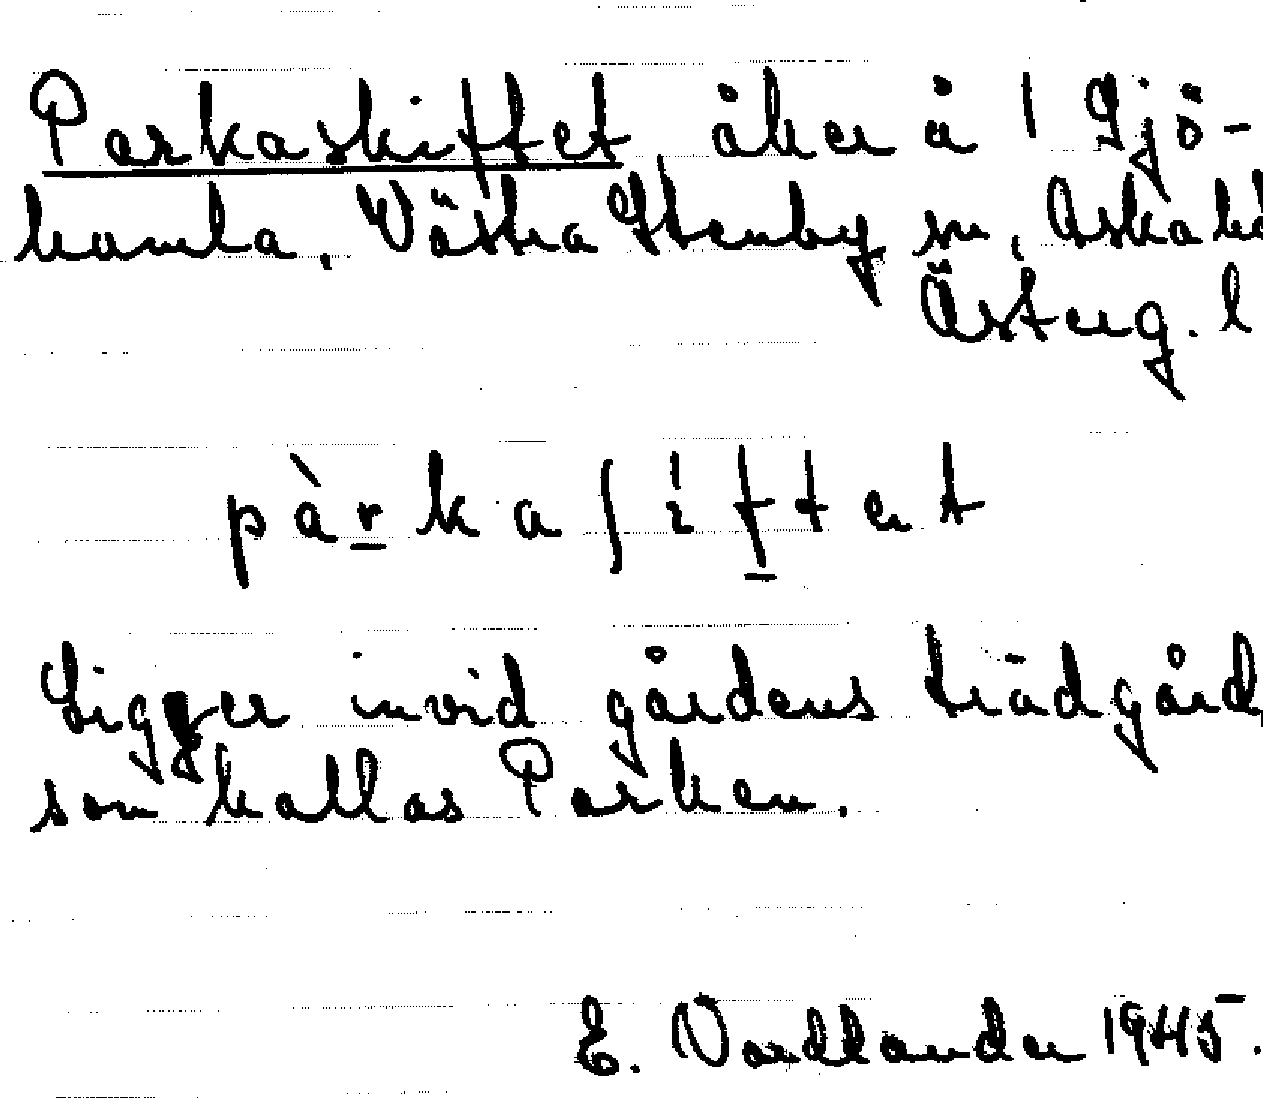 Parkaskiftet, åker å 1 Gjö-
kumla, Västra Stenby sn, Aska hd
Österg. l
pàrkaʃiftet
Ligger invid gårdens trädgård,
som kallas Parken.
E. Nordlander 1945.